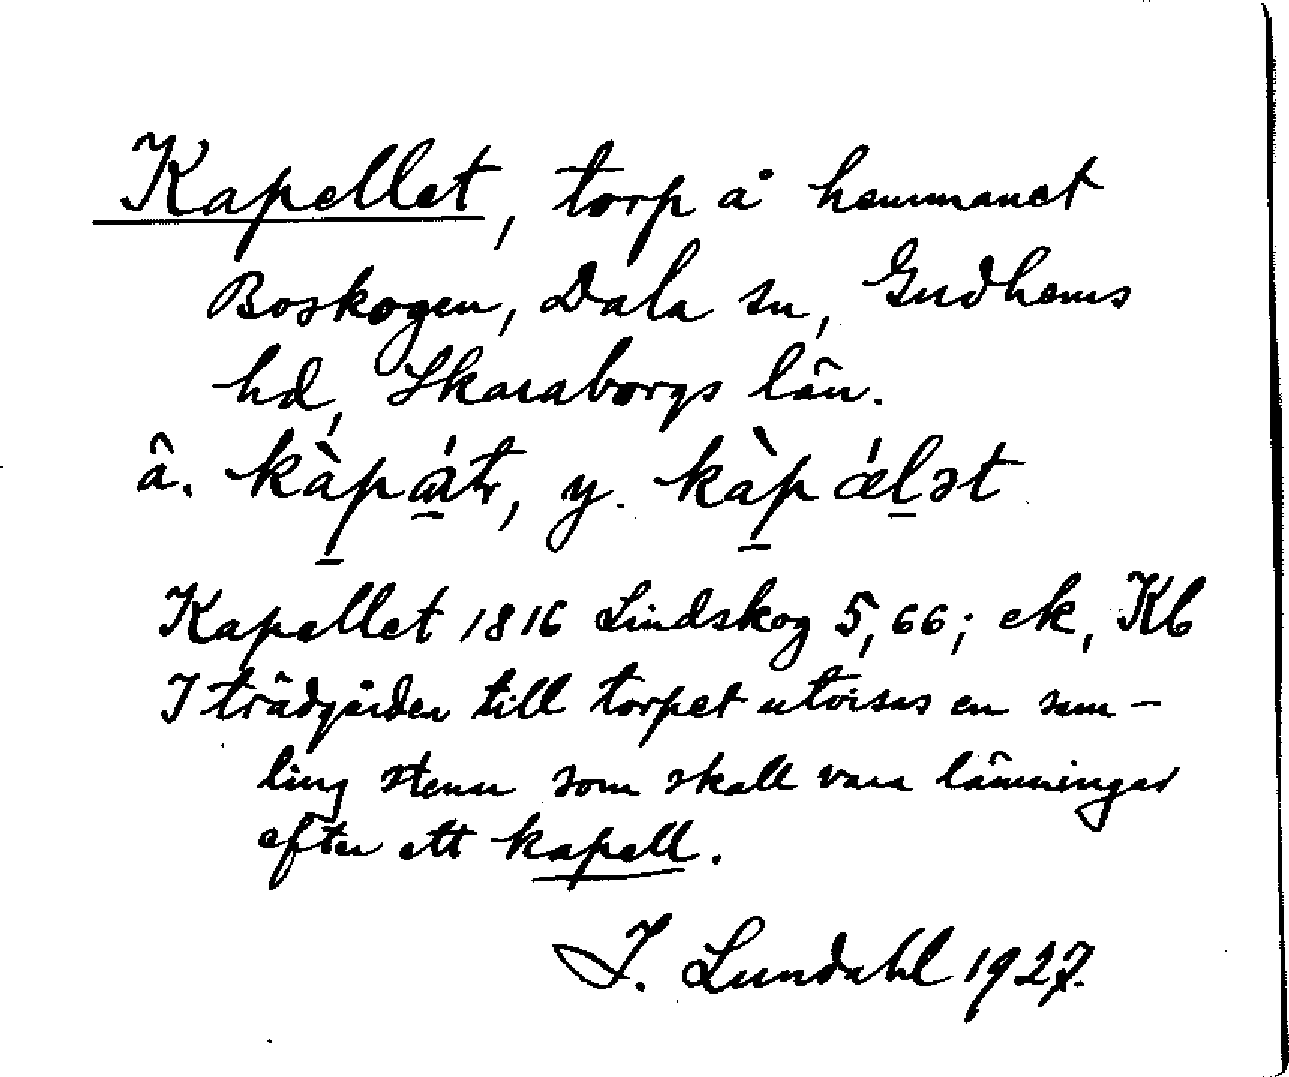 Kapellet, torp å hemmanet
Boskogen, Dala sn, Gudhems
hd, Skaraborgs län.
ä. kàpǽtr, y. kàpǽlət
Kapellet 1816 Lindskog 5,66; ek, Kb
I trädgården till torpet utvisas en sam-
ling stenar som skall vara lämningar
efter ett kapell.
I. Lundahl 1927.